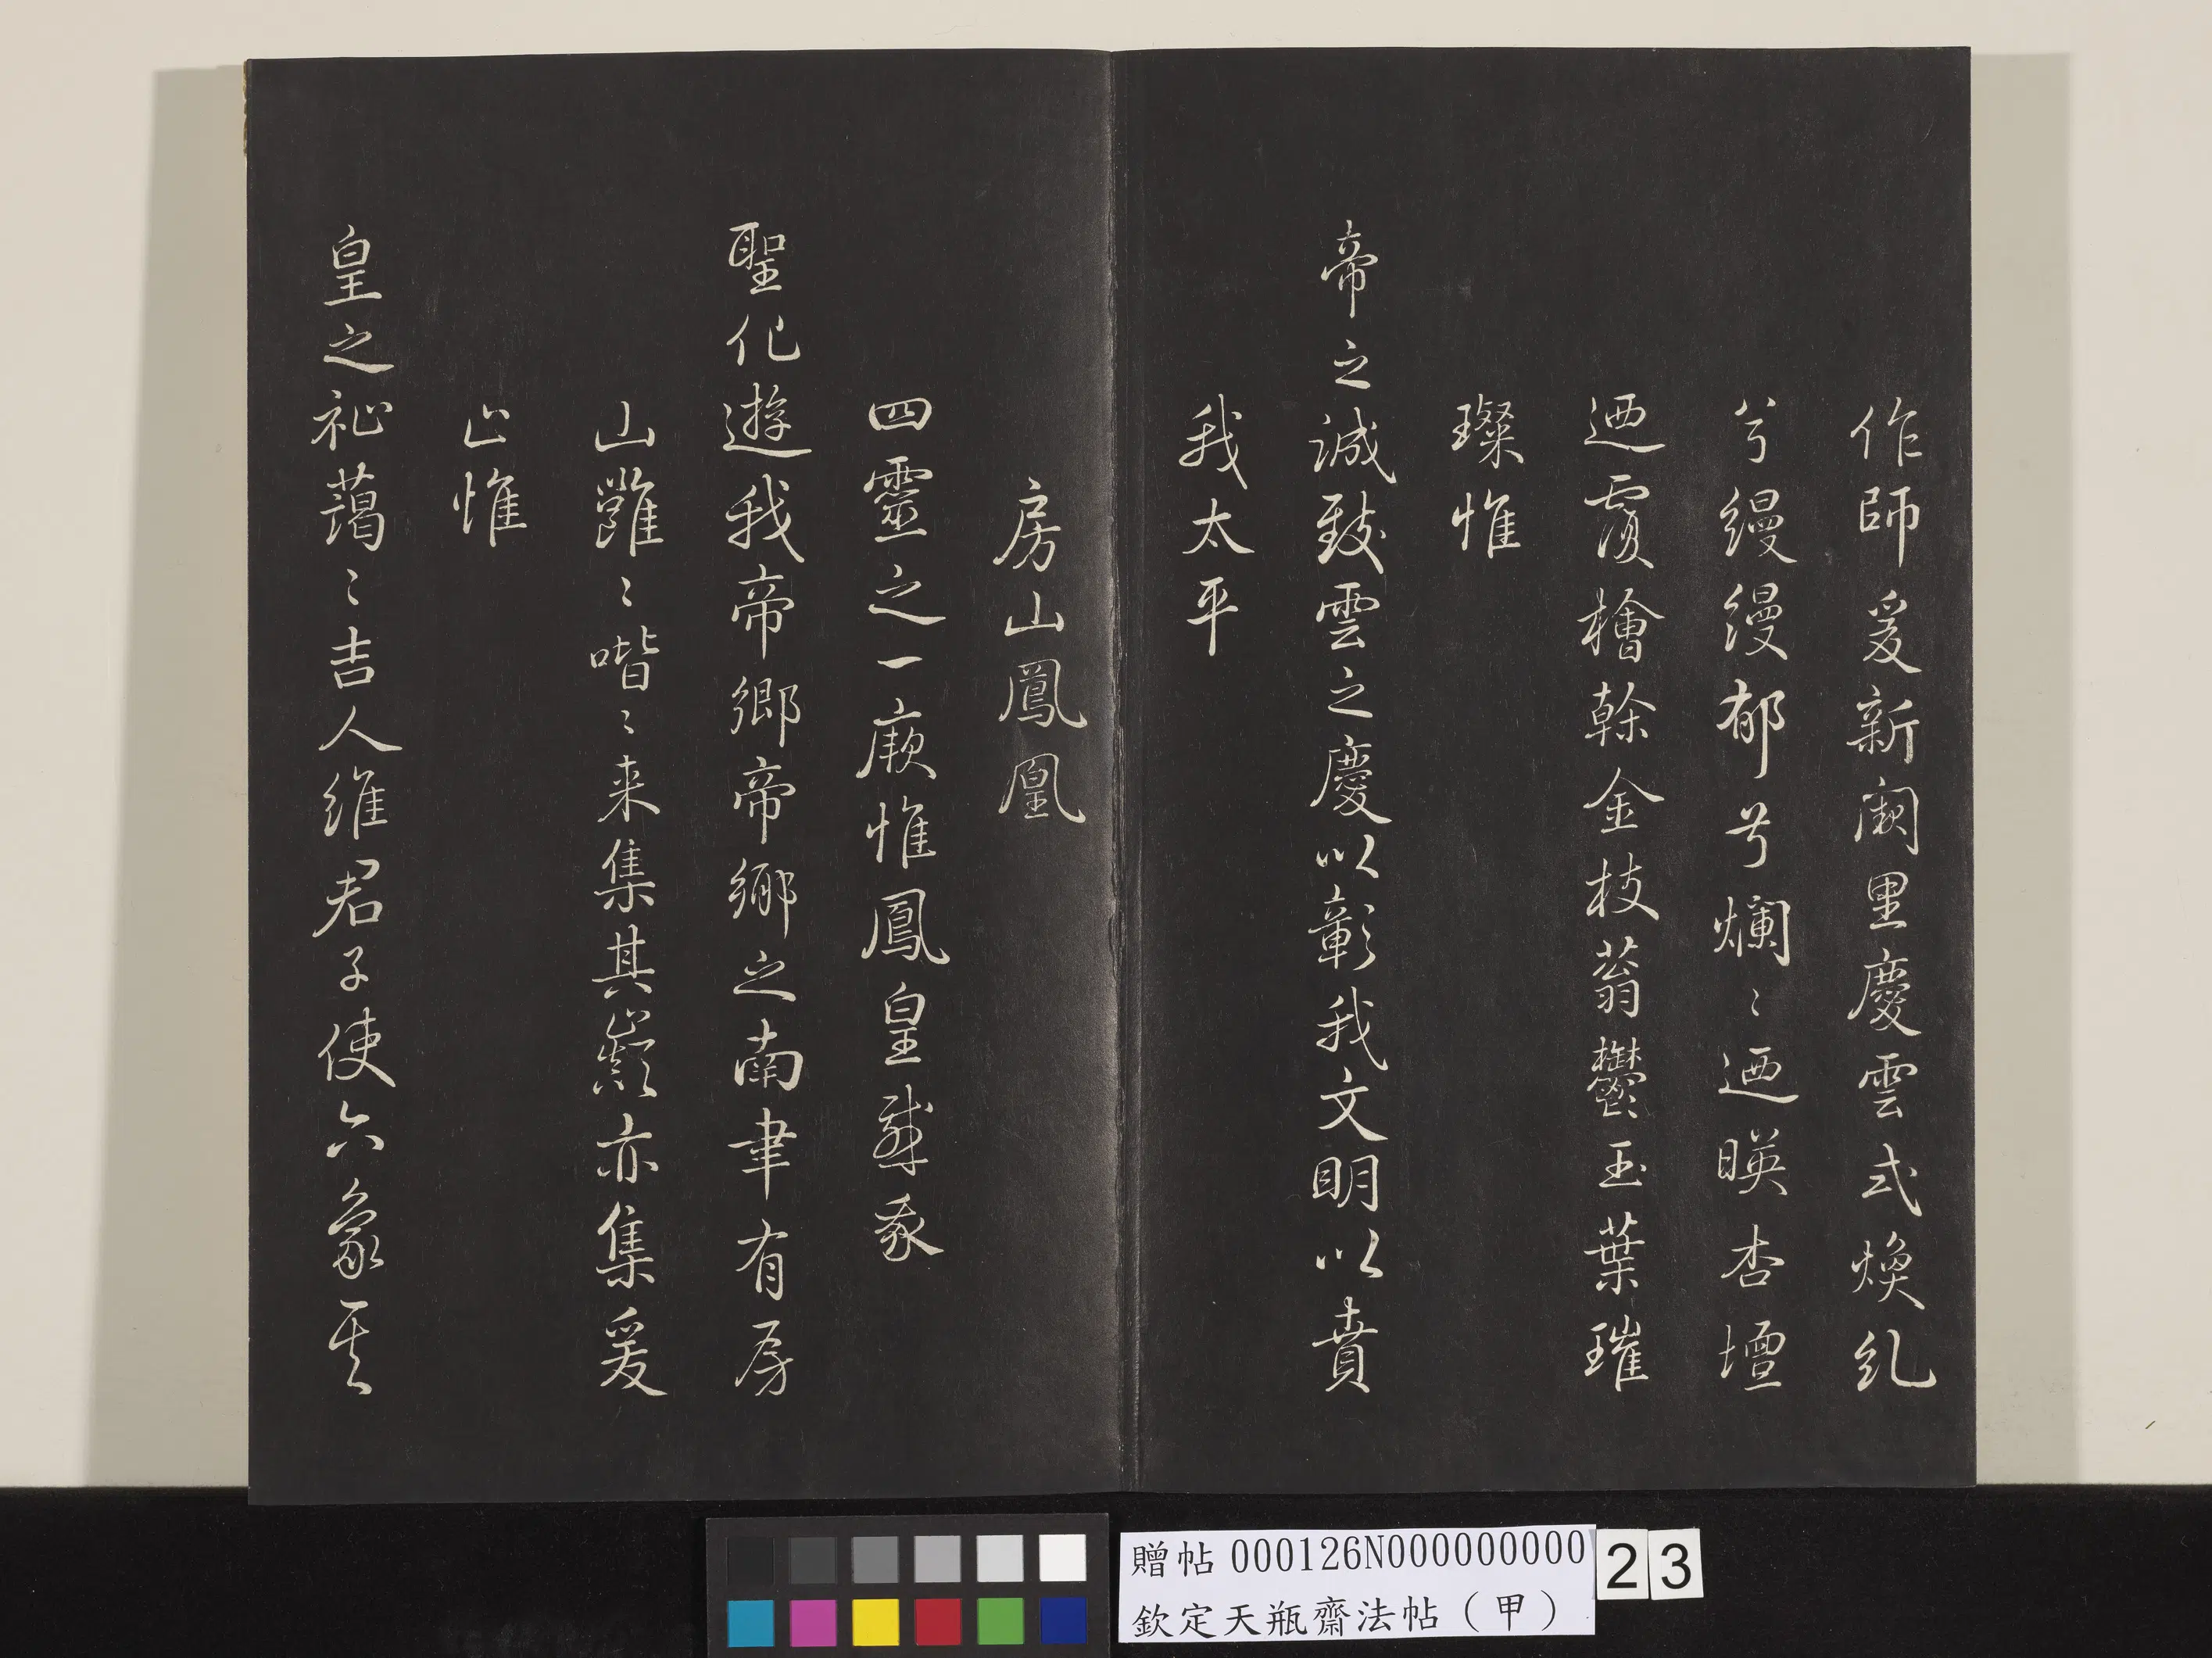 作師爰新闕里慶雲式煥紀
兮縵縵郁兮爛〻迺暎杏壇
迺覆檜幹金枝蓊鬱玉葉璀
璨惟
帝之誠致雲之慶以彰我文明以賁
我太平
房山鳳凰
四靈之一厥惟鳳皇感承
聖化遊我帝鄉帝鄉之南聿有房
山雝〻喈〻来集其巔亦集爰
止惟
皇之祉藹〻吉人維君子使六象其
贈帖 000126N000000000 23
欽定天瓶齋法帖（甲）